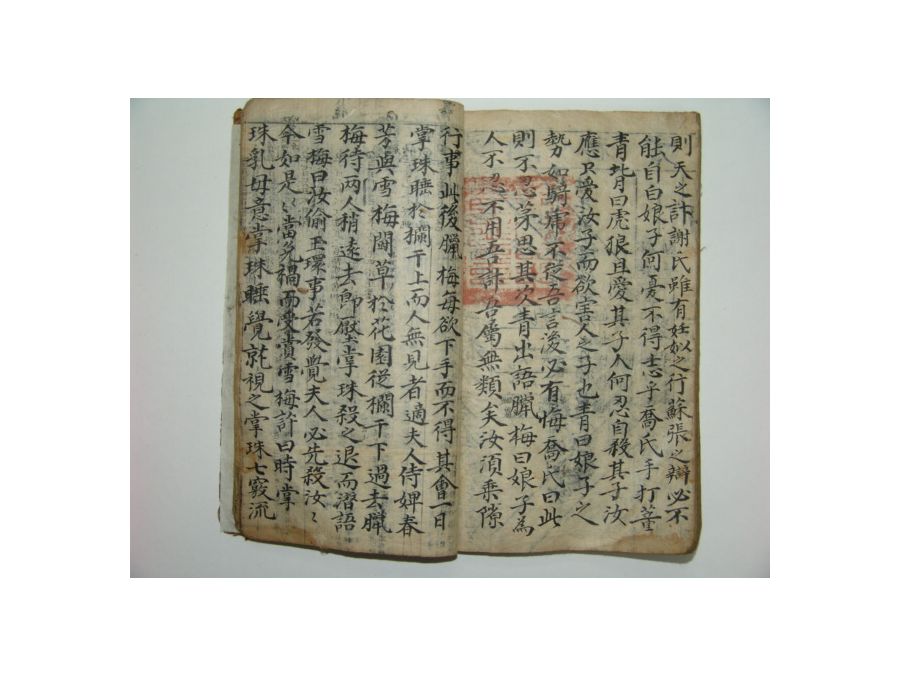 則天之計謝氏雖有妊姒之行蘇張之辯必不
能自白娘子何憂不得志乎喬氏手打董
青背曰虎狼且愛其子人何忍自殺其子汝
應只愛汝子而欲害人之子也青曰娘子之
勢如騎虎不從吾言後必有悔喬氏曰此
則不忍苐思其次青出語臘梅曰娘子為
人不忍不用吾計吾屬無類矣汝須乗隙
行事此後臘梅每欲下手而不得其會一日
掌珠睡於欄干上而人無見者適夫人侍婢春
芳與雪梅鬪草於花園從欄干下過去臘
梅待兩人稍遠去即壓掌珠殺之退而潜語
雪梅曰汝偷玉環事若發覺夫人必先殺汝〻
今如是〻當免禍而受賞雪梅許曰時掌
珠乳母意掌珠睡覺就視之掌珠七竅流